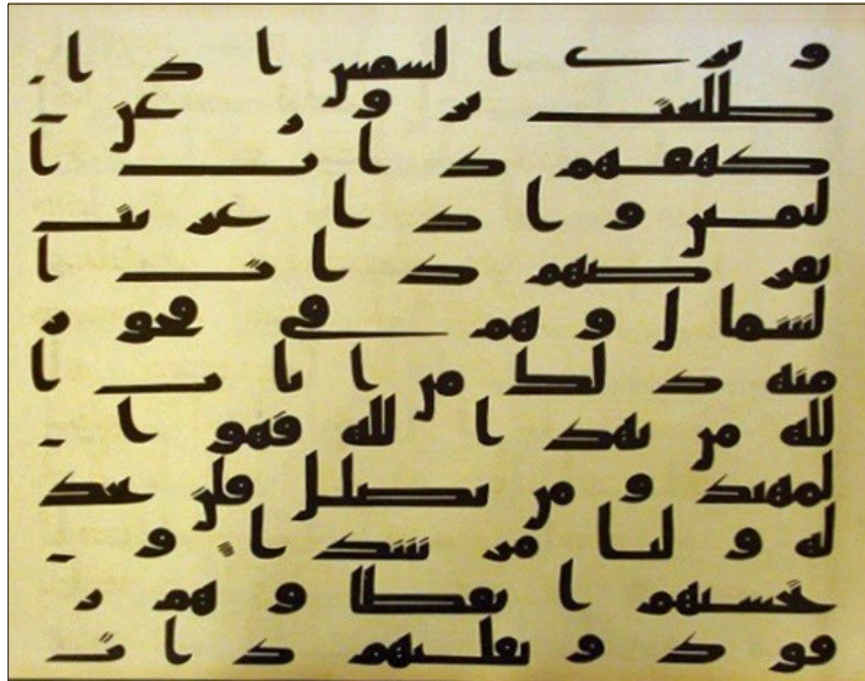 وترى الشمس اذا
طلعت تزور عن
كهفهم ذات ا
ليمين واذا غربت
تقرضهم ذات ا
لشمال وهم في فجوة
منه ذلك من ايات ا
لله من يهد الله فهو ا
لمهتد ومن يضلل فلن تجد
له وليا مرشدا و
تحسبهم ايقظا وهم ر
قود ونقلبهم ذات